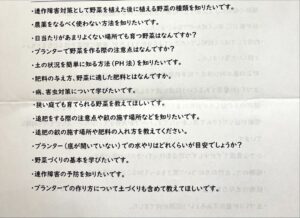 ・連作障害対策として野菜を植えた後に植える野菜の種類を知りたいです。
・農薬をなるべく使わない方法を知りたいです。
・日当たりがあまりよくない場所でも育つ野菜はなんですか？
・プランターで野菜を作る際の注意点はなんですか？
・土の状況を簡単に知る方法（PH法）を知りたいです。
・肥料の与え方、野菜に適した肥料とはなんですか。
・病、害虫対策について学びたいです。
・狭い庭でも育てられる野菜を教えてほしいです。
・追肥をする際の注意点や畝の施す場所などを知りたいです。
・追肥の畝の施す場所や肥料の入れ方を教えてください。
・プランター（底が開いていない）での水やりはどれくらいが目安でしょうか？
・野菜づくりの基本を学びたいです。
・連作障害の予防を知りたいです。
・プランターでの作り方について土づくりも含めて教えてほしいです。